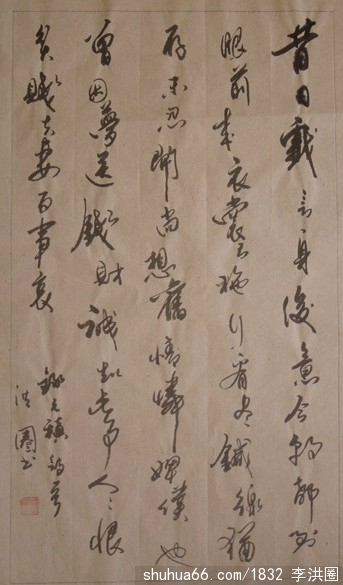 昔日戲言身後意今朝都到
眼前來衣裳已施行看盡鍼線猶
存未忍開尚想舊情憐婢僕也
曾因夢送錢財誠知此事人々恨
貧賤夫妻百事哀
錄元稹詩
洪圈書
shuhua66.com/1832 李洪圈